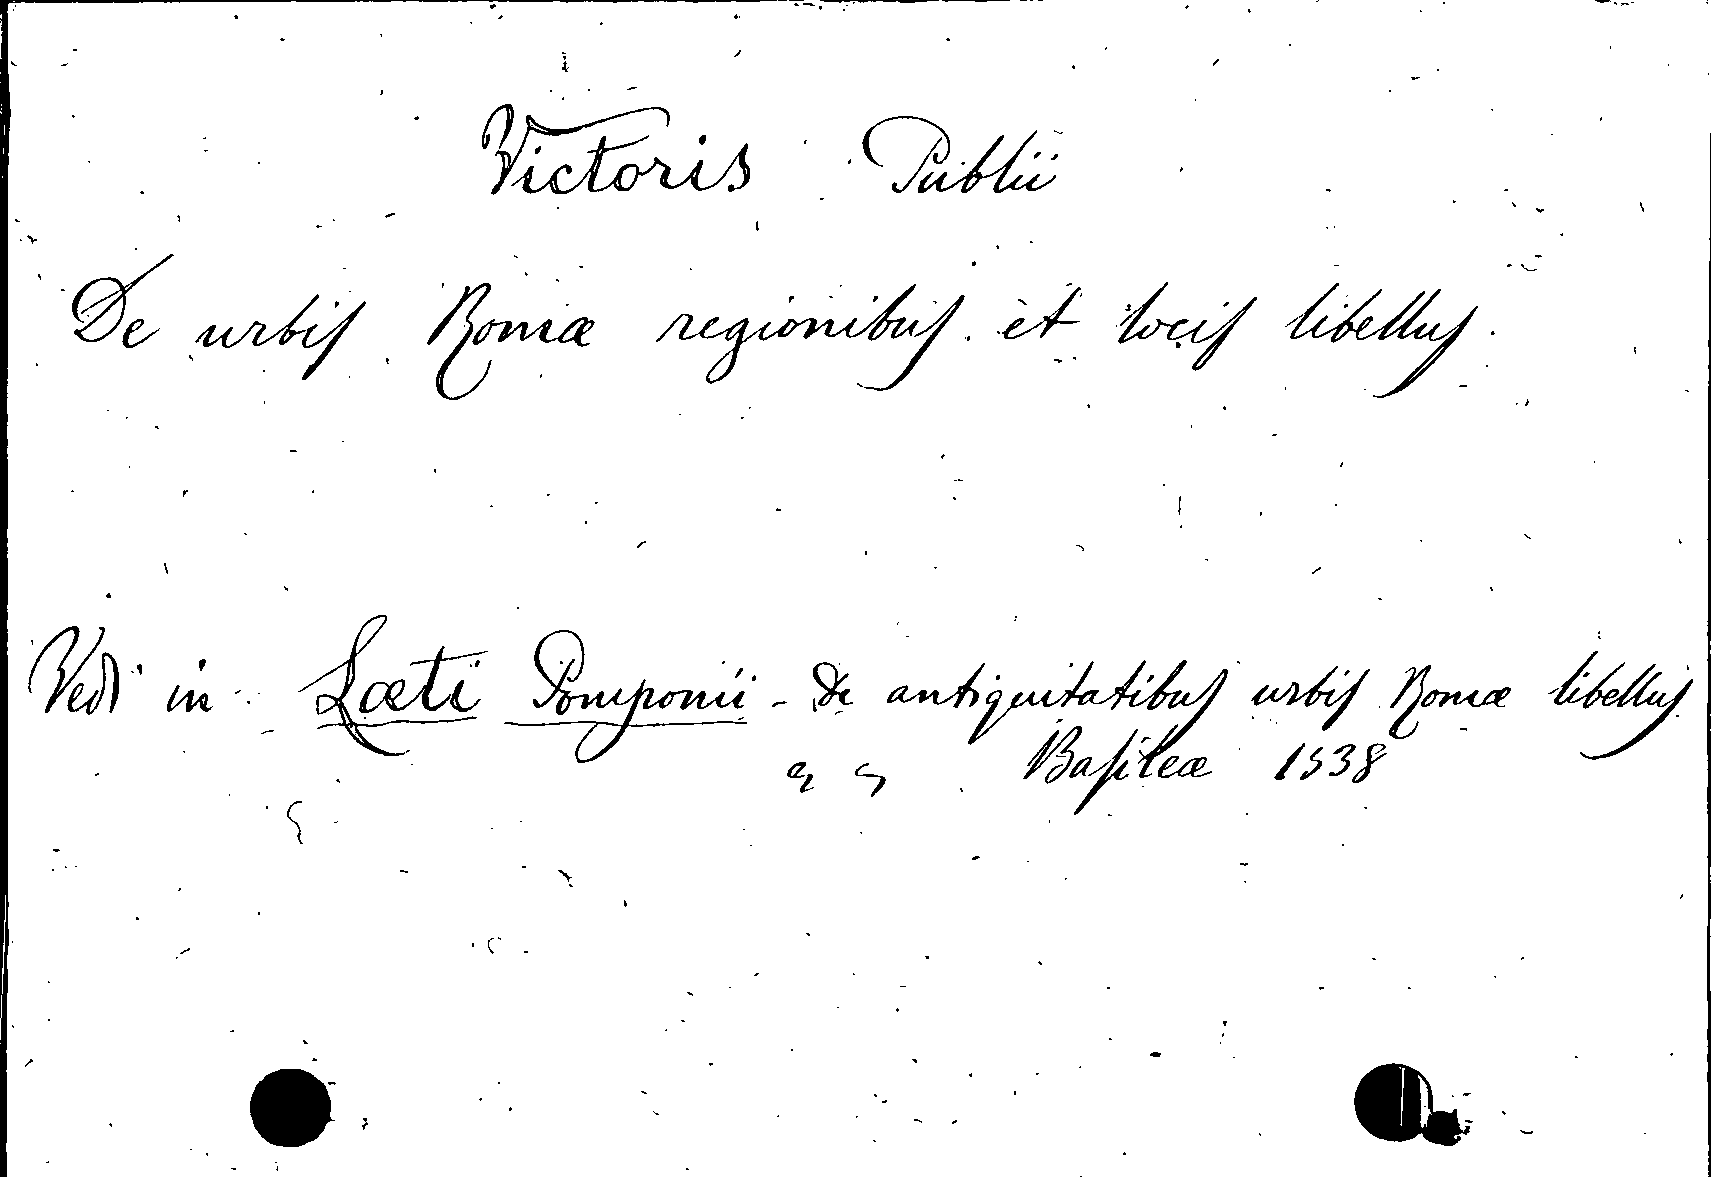 Victoris Publii
De urbis Romæ regionibus et locis libellus.
Vedi in Læti Pomponii - De antiquitatibus urbis Romæ libellus
Basileæ 1538